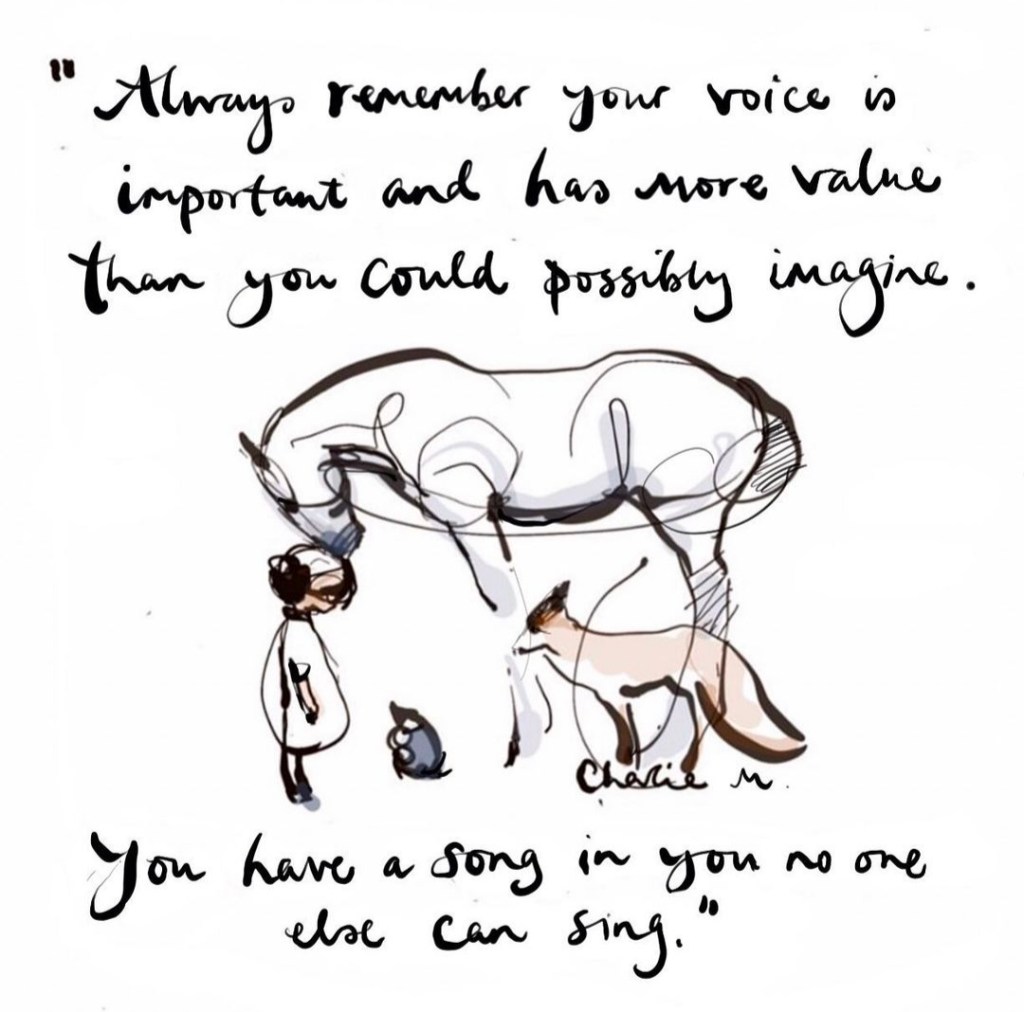 "Always remember your voice is
important and has more value
than you could possibly imagine.
Charlie M.
You have a song in you no one
else can sing."